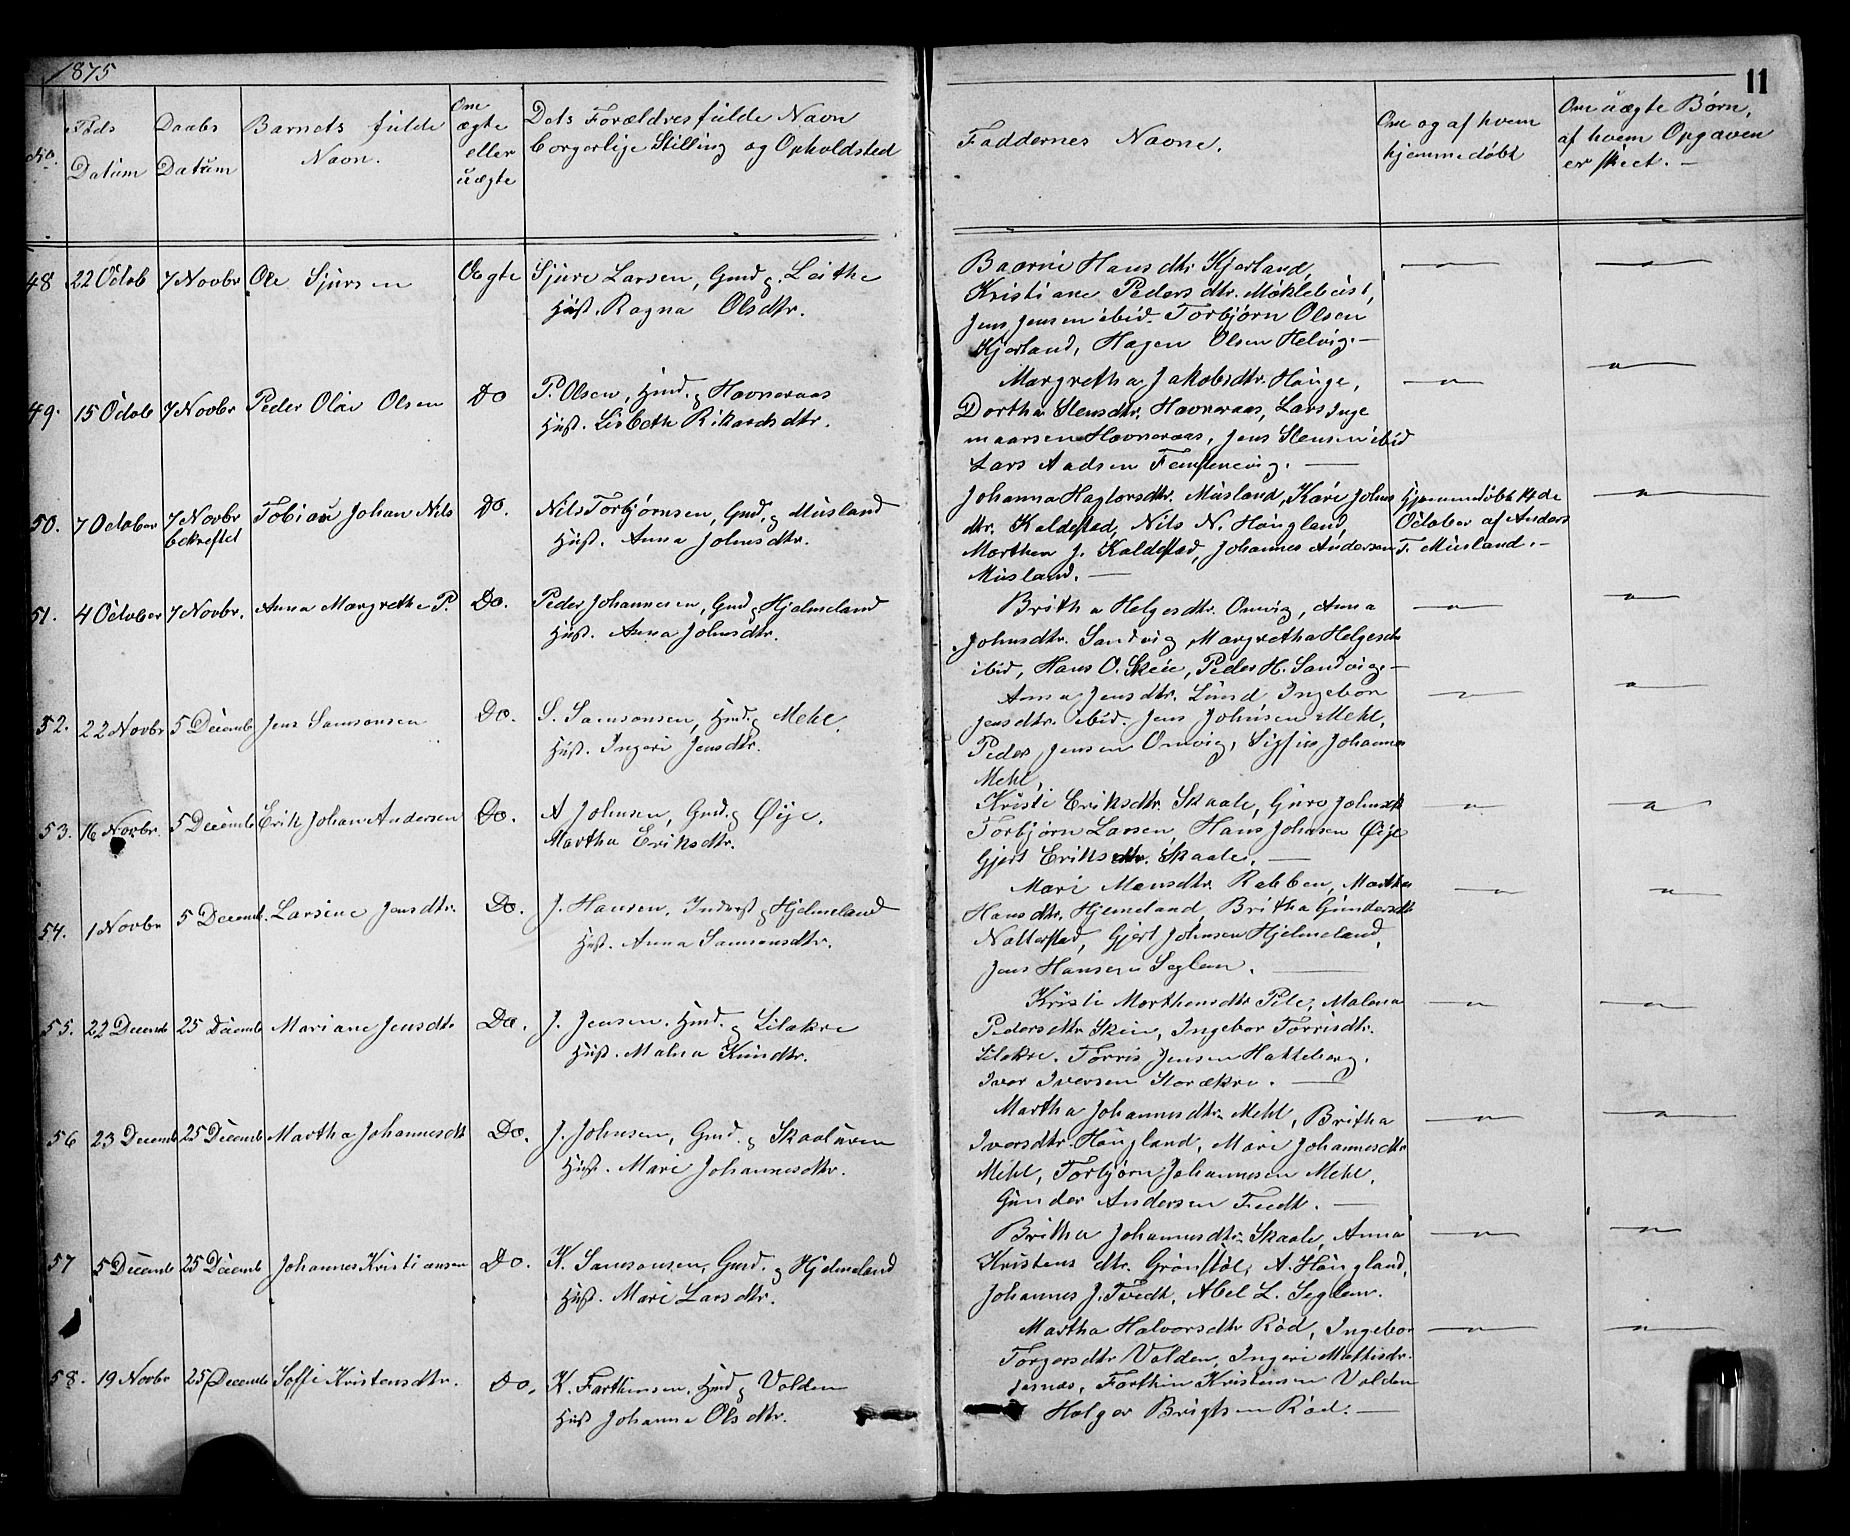 1875
11
No.
Føds Datum
Daabs Datum
Barnets fulde Navn.
Om ægte eller uægte
Dets Forældres fulde Navn borgerlige Stilling og Opholdsted
Faddernes Navne.
Om og af hvem hjemmedøbt
Om uægte Børn, af hvem Opgaven er skeet. -
48 22 Octob 7 Novbr Ole Sjursen Ægte Sjure Larsen, Gmd. g. Leithe
Hust. Ragna Olsdtr.
Hansdtr. Kjerland,
Kristiane Pedersdtr. Møklebust,
Jens Jensen ibid. Torbjørn Olsen
Kjerland, Hagen Olsen Helvig. -
49. 15 Octob 7 Novbr Peder Olai Olsen Do P. Olsen, Hmd. g Havneraas
Hust. Lisbeth Rikardsdtr.
Margretha Jakobsdtr. Hauge,
Dortha Stensdtr. Havneraas, Lars Inge
maarsen Havneraas, Jens Stensen ibid
Lars Aadsen Femsenevig. -
50. 7 October 7 Novbr bekreftet Tobias Johan Nils Do. Nils Torbjørnsen, Gmd. g Musland
Hust. Anna Johnsdtr.
Johanna Hagtorsdtr. Musland, Kari Johns
dtr. Kaldestad, Nils N. Haugland,
Morthen J. Kaldestad, Johannes Andersen
Musland. -
Hjemmedøbt 14de
October af Anders
T. Musland. -
51. 4 October 7 Novbr. Anna Margrethe P. Do. Peder Johannesen, Gmd g Hjelmeland
Hust. Anna Johnsdtr.
Britha Helgesdtr. Omvig, Anna
Johnsdtr. Sandvig, Margretha Helgesdtr
ibid, Hans O. Skeie, Peder H. Sandvig. -
52. 22 Novbr 5 Decemb Jens Samsonsen Do. S. Samsonsen, Hmd. g Mehl,
Hust. Ingeri Jensdtr.
Anna Jensdtr. Lund, Ingebor
Jensdtr. ibid. Jens Johnsen Mehl,
Peder Jensen Omvig, Johannes
Mehl,
53. 16 Novbr. 5 Decemb Erik Johan Andersen Do. A Johnsen, Gmd. g Øije.
Martha Eriksdtr.
Kristi Eriksdtr. Skaale, Guro Johnsdtr
Torbjørn Larsen, Hans Johnsen Øije
Gjert Eriksdtr. Skaale. -
54. 1 Novbr 5 Decemb. Larsine Jensdtr. Do. J. Hansen, Inderst g Hjelmeland
Hust. Anna Samsonsdtr.
Mari Monsdtr. Rabben, Martha
Hansdtr. Hjemeland, Britha Gundersdtr
Natterstad, Gjert Johnsen Hjelmeland,
Jens Hansen Seglem. -
55. 22 Decemb 25 Decemb Mariane Jensdtr Do. J. Jensen, Hmd. g Lilakre
Hust. Malna Knudtr.
Kristi Morthensdtr Pile, Malena
Pedersdtr Skeie, Ingebor Torrisdtr.
Lilakre. Torris Jensen Hatteberg,
Iver Iversen Storækre. -
56 23 Decemb 25 Decemb Martha Johannesdtr Do. J. Johnsen, Gmd. g Skaaluren
Hust. Mari Johannesdtr.
Martha Johannesdtr. Mehl, Britha
Iversdtr. Haugland, Mari Johannesdtr
Mehl, Torbjørn Johannesen Mehl,
Gunder Andersen Tvedt. -
57 5 Decemb 25 Decemb Johannes Kristiansen Do. K. Samsonsen, Gmd. g Hjelmeland
Hust. Mari Larsdtr.
Britha Johannesdtr. Skaale, Anna
Kristensdtr. Grønstøl, A. Haugland,
Johannes J. Tvedt, Abel L. Seglem.
58. 19 Novbr 25 Decemb Soffi Kristensdtr. Do. K. Farthinsen, Hmd g Volden
Hust Johanna Olsdtr.
Martha Halvorsdtr Rød, Ingebor
Torgersdtr Volden, Ingeri Mattisdtr.
Farthin Kristensen Volden
Holger Brigtsen Rød. -